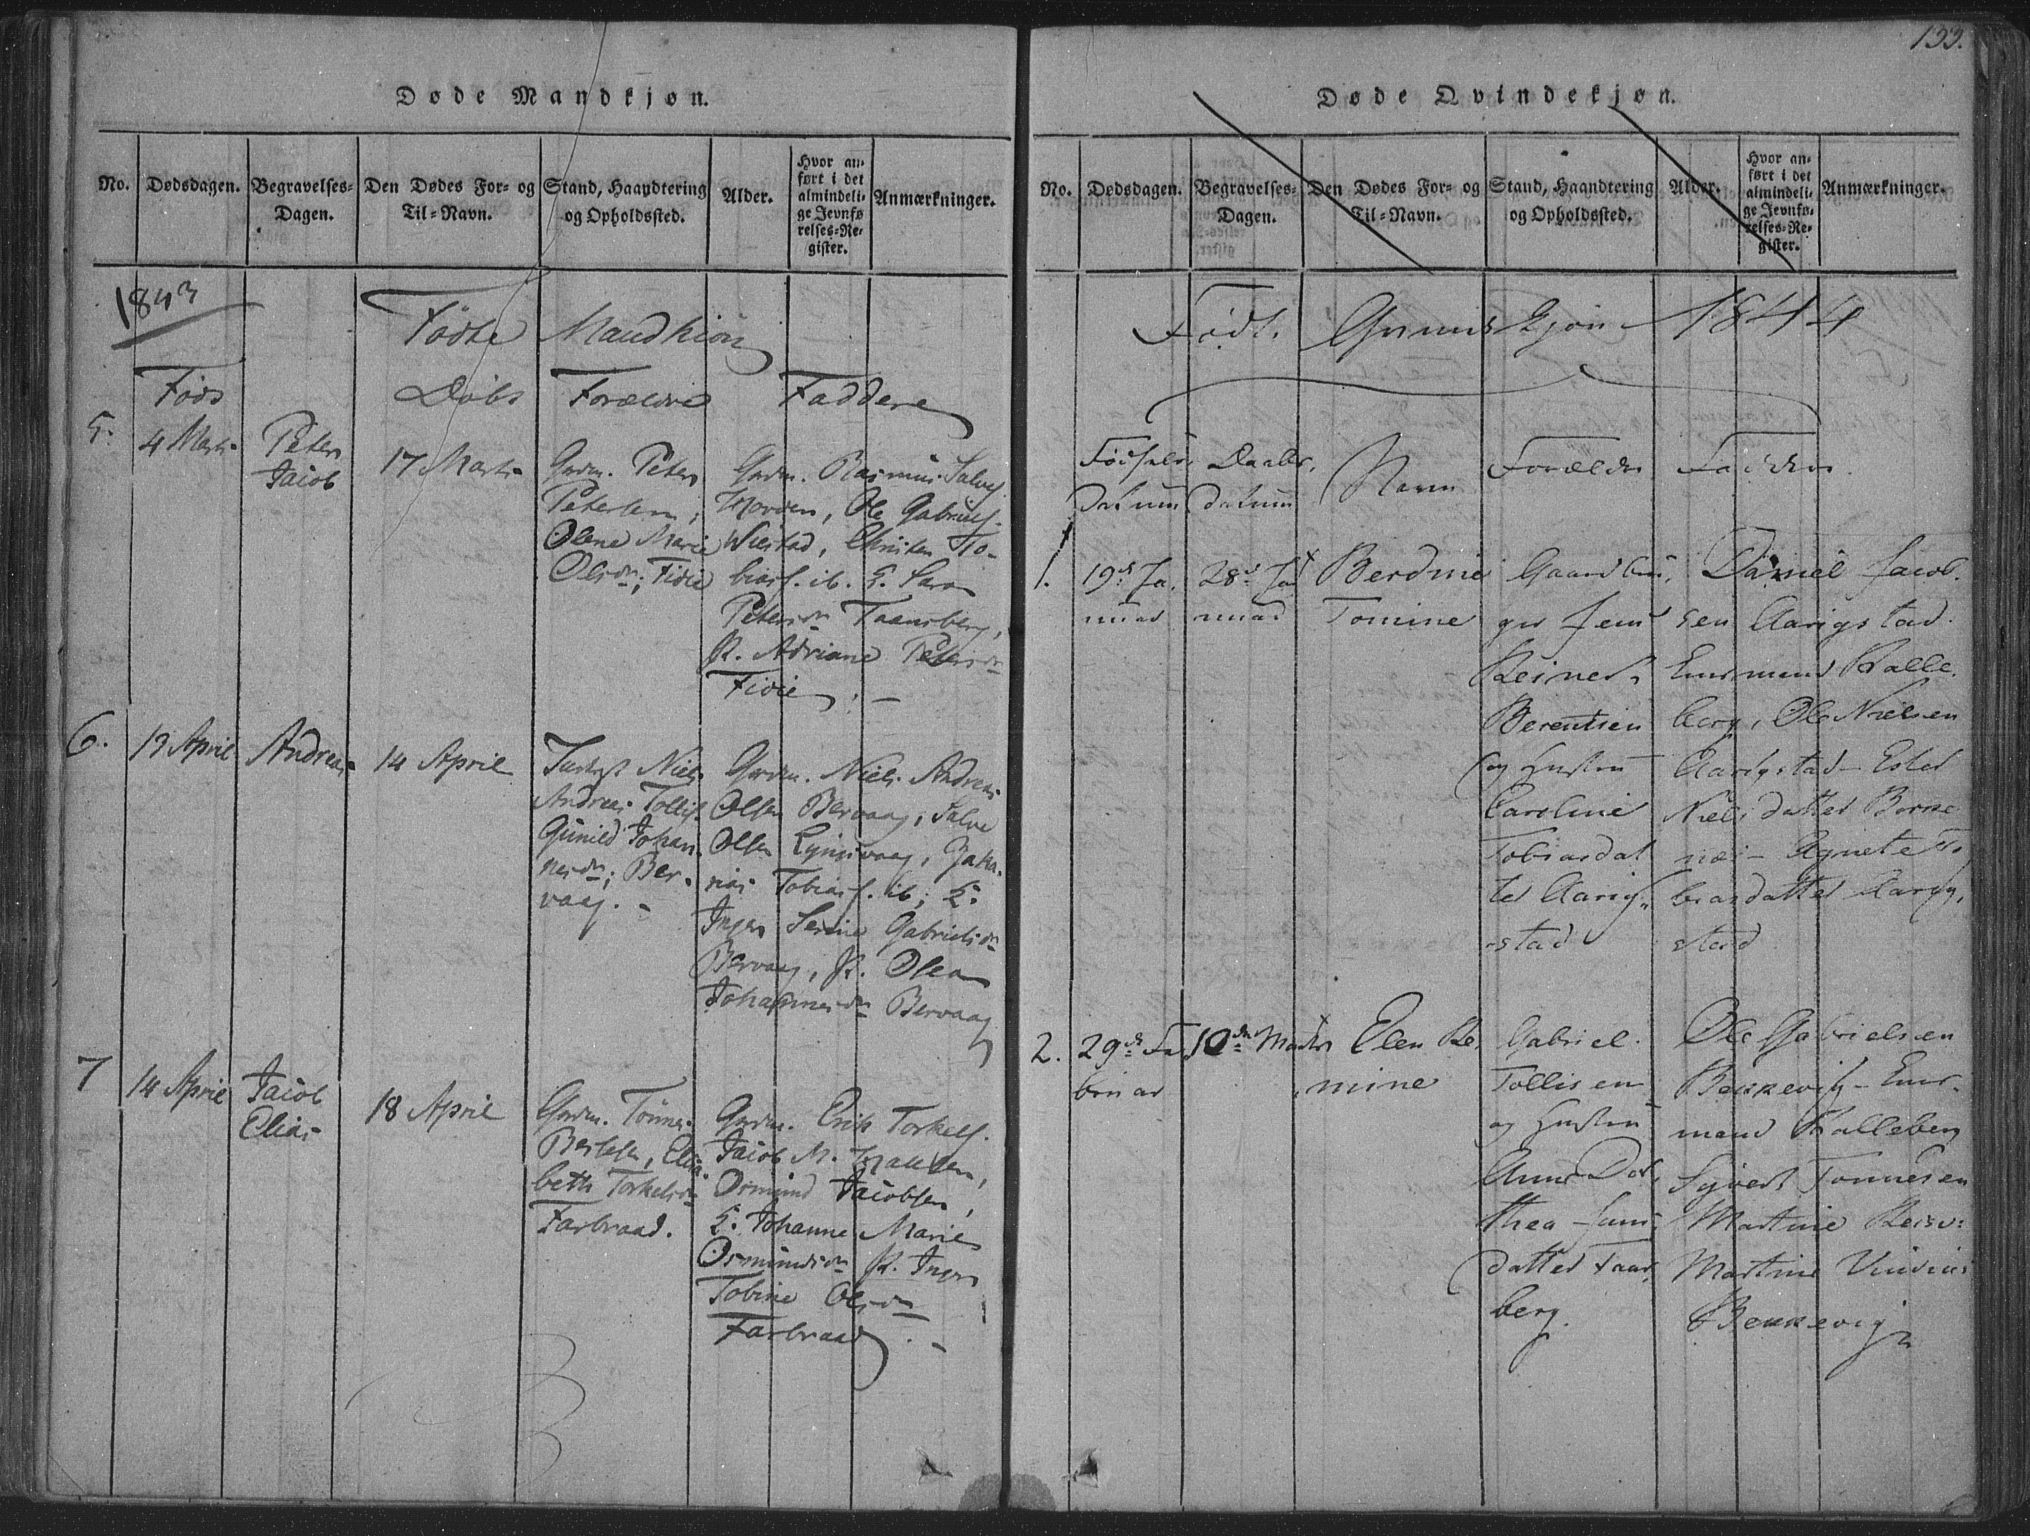 Døde Mandkjøn.
No.
Dødsdagen.
Begravelses-
Dagen.
Den Dødes For- og
Til-Navn.
Stand, Haandtering
og Opholdssted.
Alder.
Hvor an-
ført i det
almindeli-
ge Jevnfø
relses-Re-
gister.
Anmærkninger.
1843
Fødte Mandkiøn
Føds
Døbs
Forældre
Faddere
5.
4 Marts
Peter
Jacob
17 Marts
Grdm. Peter
Petersen,
Olene Marie
Olsdr; Fidie
Grdm. Rasmus Salves.
Hovden, Ole Gabriels.
Wiestad, Christen To-
biass. ib. L. Sara
Petersdr Taansberg,
K. Adriane Petersdr
Fidie
6.
13 April
Andreas
14 April
Niels
Andreas Tollifs.
Gunild Johan-
nesdr; Ber-
vaag.
Grdm. Niels Andreas
Olsen Bervaag, Salve
Olsen Lyngsvaag, Zaka-
rias Tobiass. ib; L.
Inger Serine Gabrielsdr
Bervaag, K. Olea
Johannesdr Bervaag
7
14 April
Jacob
Elias
18 April
Grdm. Tønnes
Bertelsen, Elisa-
beth Torkelsdr
Farbraad.
Grdm. Erik Torkels.
Jacob M.
Osmund Jacobsen,
L. Johanne Marie
Osmundsdr K. Inger
Tobine Olsdr
Farbraad.
133.
Døde Qvindekjøn.
No.
Dødsdagen.
Begravelses-
Dagen.
Den Dødes For- og
Til-Navn.
Stand, Haandtering
og Opholdssted.
Alder.
Hvor an-
ført i det
almindeli-
ge Jevnfø-
relses-Re-
gister.
Anmærkninger.
Født Qvindekjøn 1844
Fødsels
datum
Daabs
datum
Navn
Forældre
Faddere
1.
19de Ja-
nuar
28de Ja-
nuar
Berdine
Tomine
Gaardbru-
ger Jens
Reinert
Berentsen
og Hustru
Caroline
Tobiasdat
ter Aarig-
stad
Daniel Jacob-
sen Aarigstad.
Enesmund Kalle-
berg, Ole Nielsen
Aarigstad - Ester
Nielsdatter
- Agnete To-
biasdatter Aarig-
stad
2.
29de Fe-
bruar
10de Marts
Elen Re-
mine
Gabriel
Tollisen
og Hustru
Anne Doro-
thea Jens-
datter Faar-
berg.
Ole Gabrielsen
Bekkevig - 
Kalleberg
Sivert Tonnesen
Martine
Martine
Bekkevig